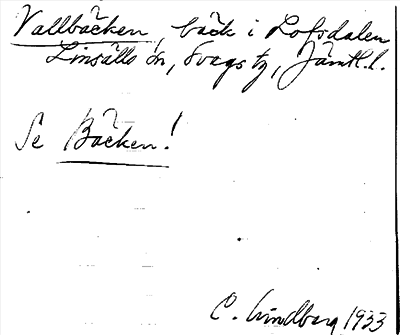 Vallbäcken, bäck i Lofsdalen
Linsälls sn, Svegs tg, Jämtl. l.
Se Bäcken!
C. Lindberg 1933